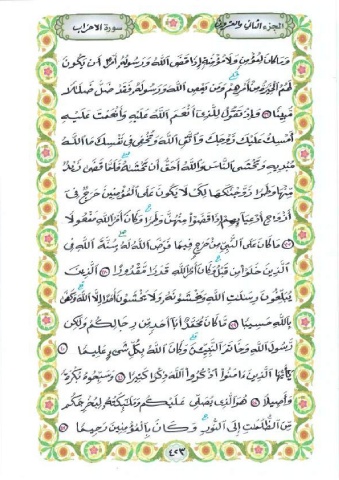 الجزء الثاني والعشرون سورة الأحزاب
وَمَا كَانَ لِمُؤْمِنٍ وَلَا مُؤْمِنَةٍ إِذَا قَضَى اللَّهُ وَرَسُولُهُ أَمْرًا أَن يَكُونَ
لَهُمُ الْخِيَرَةُ مِنْ أَمْرِهِمْ وَمَن يَعْصِ اللَّهَ وَرَسُولَهُ فَقَدْ ضَلَّ ضَلَالًا
مُّبِينًا ۝ وَإِذْ تَقُولُ لِلَّذِي أَنْعَمَ اللَّهُ عَلَيْهِ وَأَنْعَمْتَ عَلَيْهِ
أَمْسِكْ عَلَيْكَ زَوْجَكَ وَاتَّقِ اللَّهَ وَتُخْفِي فِي نَفْسِكَ مَا اللَّهُ
مُبْدِيهِ وَتَخْشَى النَّاسَ وَاللَّهُ أَحَقُّ أَن تَخْشَاهُ فَلَمَّا قَضَى زَيْدٌ
مِّنْهَا وَطَرًا زَوَّجْنَاكَهَا لِكَيْ لَا يَكُونَ عَلَى الْمُؤْمِنِينَ حَرَجٌ فِي
أَزْوَاجِ أَدْعِيَائِهِمْ إِذَا قَضَوْا مِنْهُنَّ وَطَرًا وَكَانَ أَمْرُ اللَّهِ مَفْعُولًا
۝ مَّا كَانَ عَلَى النَّبِيِّ مِنْ حَرَجٍ فِيمَا فَرَضَ اللَّهُ لَهُ سُنَّةَ اللَّهِ فِي
الَّذِينَ خَلَوْا مِن قَبْلُ وَكَانَ أَمْرُ اللَّهِ قَدَرًا مَّقْدُورًا ۝ الَّذِينَ
يُبَلِّغُونَ رِسَالَاتِ اللَّهِ وَيَخْشَوْنَهُ وَلَا يَخْشَوْنَ أَحَدًا إِلَّا اللَّهَ وَكَفَى
بِاللَّهِ حَسِيبًا ۝ مَّا كَانَ مُحَمَّدٌ أَبَا أَحَدٍ مِّن رِّجَالِكُمْ وَلَكِن
رَّسُولَ اللَّهِ وَخَاتَمَ النَّبِيِّينَ وَكَانَ اللَّهُ بِكُلِّ شَيْءٍ عَلِيمًا ۝
يَا أَيُّهَا الَّذِينَ آمَنُوا اذْكُرُوا اللَّهَ ذِكْرًا كَثِيرًا ۝ وَسَبِّحُوهُ بُكْرَةً
وَأَصِيلًا ۝ هُوَ الَّذِي يُصَلِّي عَلَيْكُمْ وَمَلَائِكَتُهُ لِيُخْرِجَكُم
مِّنَ الظُّلُمَاتِ إِلَى النُّورِ وَكَانَ بِالْمُؤْمِنِينَ رَحِيمًا ۝
٤٢٣